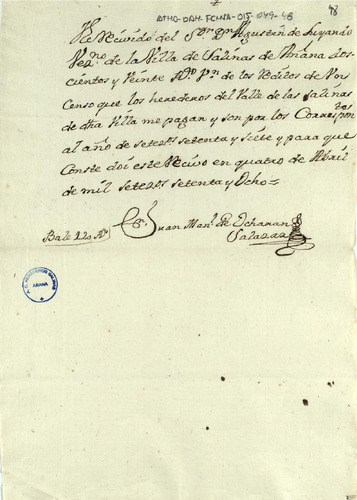 ATHO-DAH-FCHNA-015-049-48
48
He Recivido del S.or D.n Agustin de Luyando
Vez.no de la Villa de Salinas de Añana dos-
cientos y veinte R.s V.n de los Reditos de Un
Censo que los herederos del Valle de las salinas
de dha Villa me pagan y son por los Corres.tes
al año de setez.s setenta y siete y para que
Conste doi este Recivo en quatro de Abril
de mil setez.s setenta y Ocho=
Bale 220 R.s
Juan Man.l de
Salazar
AÑANA